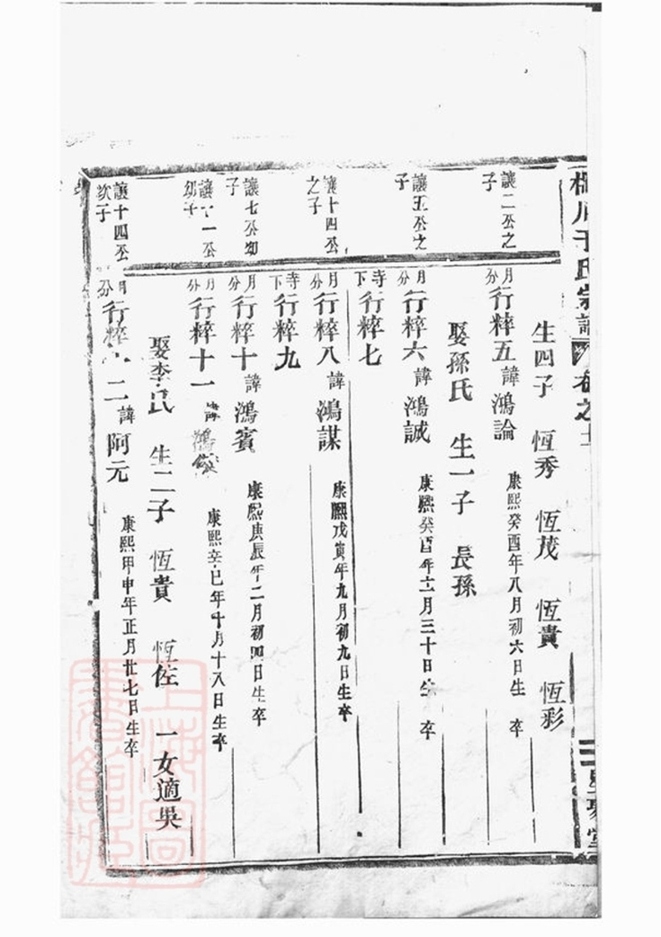 于氏宗譜 卷之
生四子 恆秀 恆茂 恆貴 恆彩
讓二公之子
月分行粹五諱鴻論 康熙癸酉年八月初六日生 卒
娶孫氏 生一子 長孫
讓五公之子
月分行粹六諱鴻誠 康熙癸酉年十二月三十日生 卒
寺下行粹七
讓十四公之子
月分行粹八諱鴻謀 康熙戊寅年九月初九日生卒
寺下行粹九
讓七公幼子
月分行粹十諱鴻賓 康熙庚辰年二月初四日生卒
讓十一公幼子
月分行粹十一諱鴻 康熙辛巳年十月十八日生卒
娶李氏 生二子 恆貴 恆佐 一女適吳
讓十四公次子
月分行粹十二諱阿元 康熙甲申年正月廿七日生卒